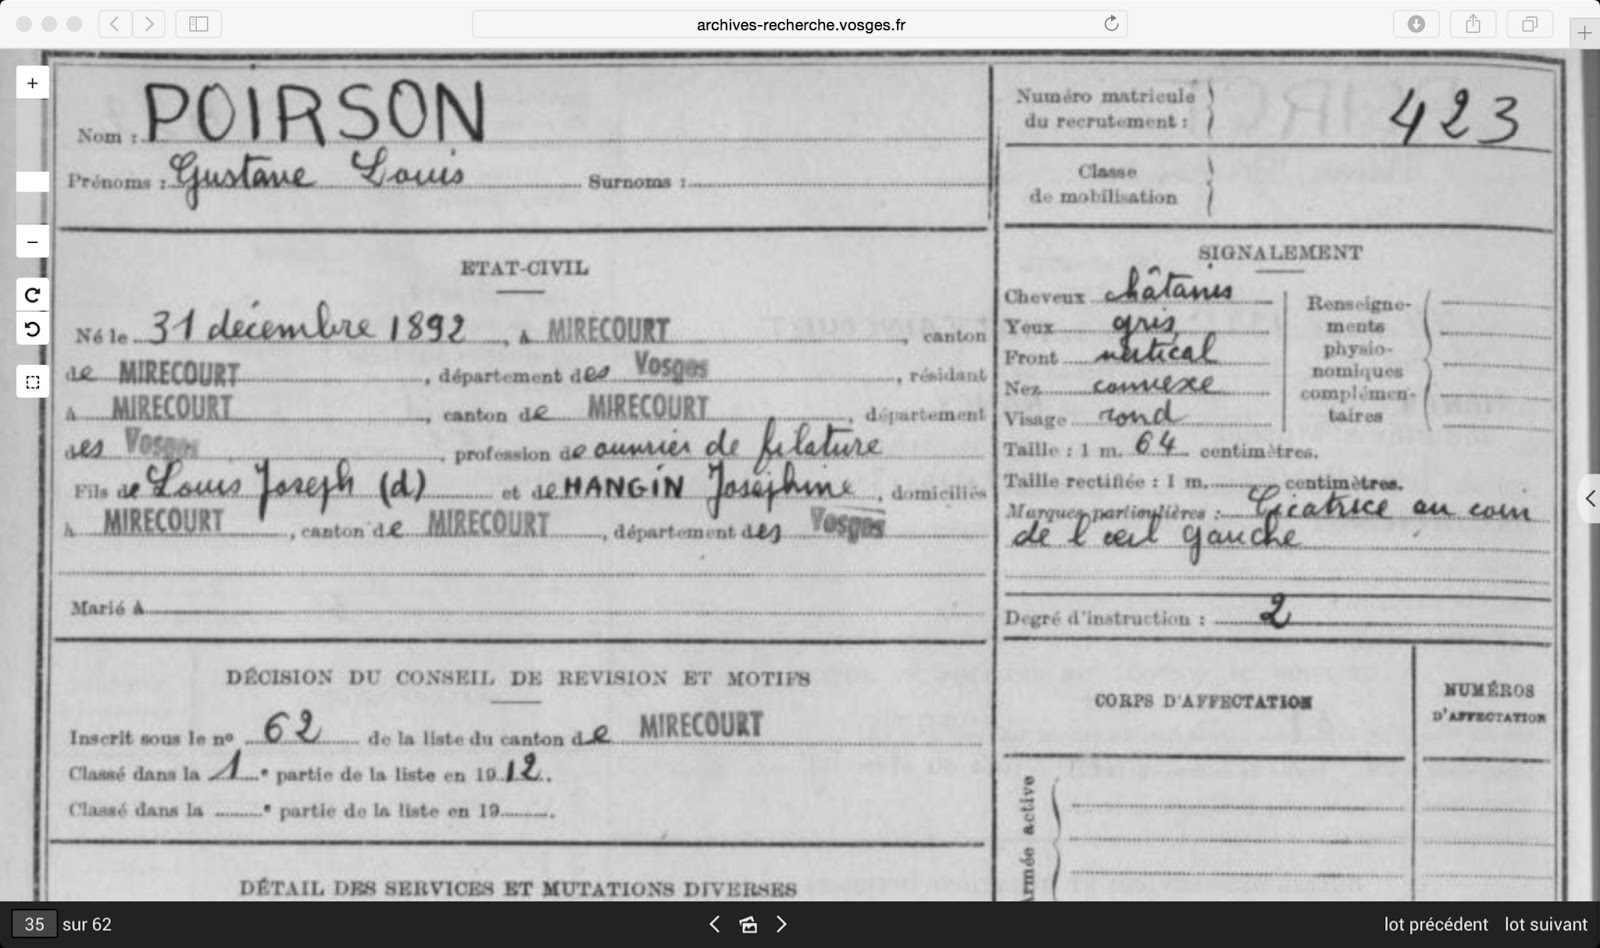 archives-recherche.vosges.fr
Nom : POIRSON
Prénoms : Gustave Louis Surnoms :
Numéro matricule du recrutement : 423
Classe de mobilisation
ETAT-CIVIL
Né le 31 décembre 1892, à MIRECOURT, canton
de MIRECOURT, département des Vosges, résidant
à MIRECOURT, canton de MIRECOURT, département
des Vosges, profession de ouvrier de filature
Fils de Louis Joseph (d) et de MANGIN Joséphine, domiciliés
à MIRECOURT, canton de MIRECOURT, département des Vosges
Marié à
SIGNALEMENT
Cheveux châtains
Yeux gris
Front vertical
Nez convexe
Visage rond
Renseigne-
ments
physio-
nomiques
complémen-
taires
Taille : 1 m. 64 centimètres.
Taille rectifiée : 1 m. centimètres.
Marques particulières : Cicatrice au coin
de l'œil gauche
Degré d'instruction : 2
DÉCISION DU CONSEIL DE REVISION ET MOTIFS
Inscrit sous le nº 62 de la liste du canton de MIRECOURT
Classé dans la 1e partie de la liste en 1912.
Classé dans la e partie de la liste en 19 .
CORPS D'AFFECTATION
NUMÉROS
D'AFFECTATION
Armée active
DÉTAIL DES SERVICES ET MUTATIONS DIVERSES
35 sur 62
lot précédent lot suivant